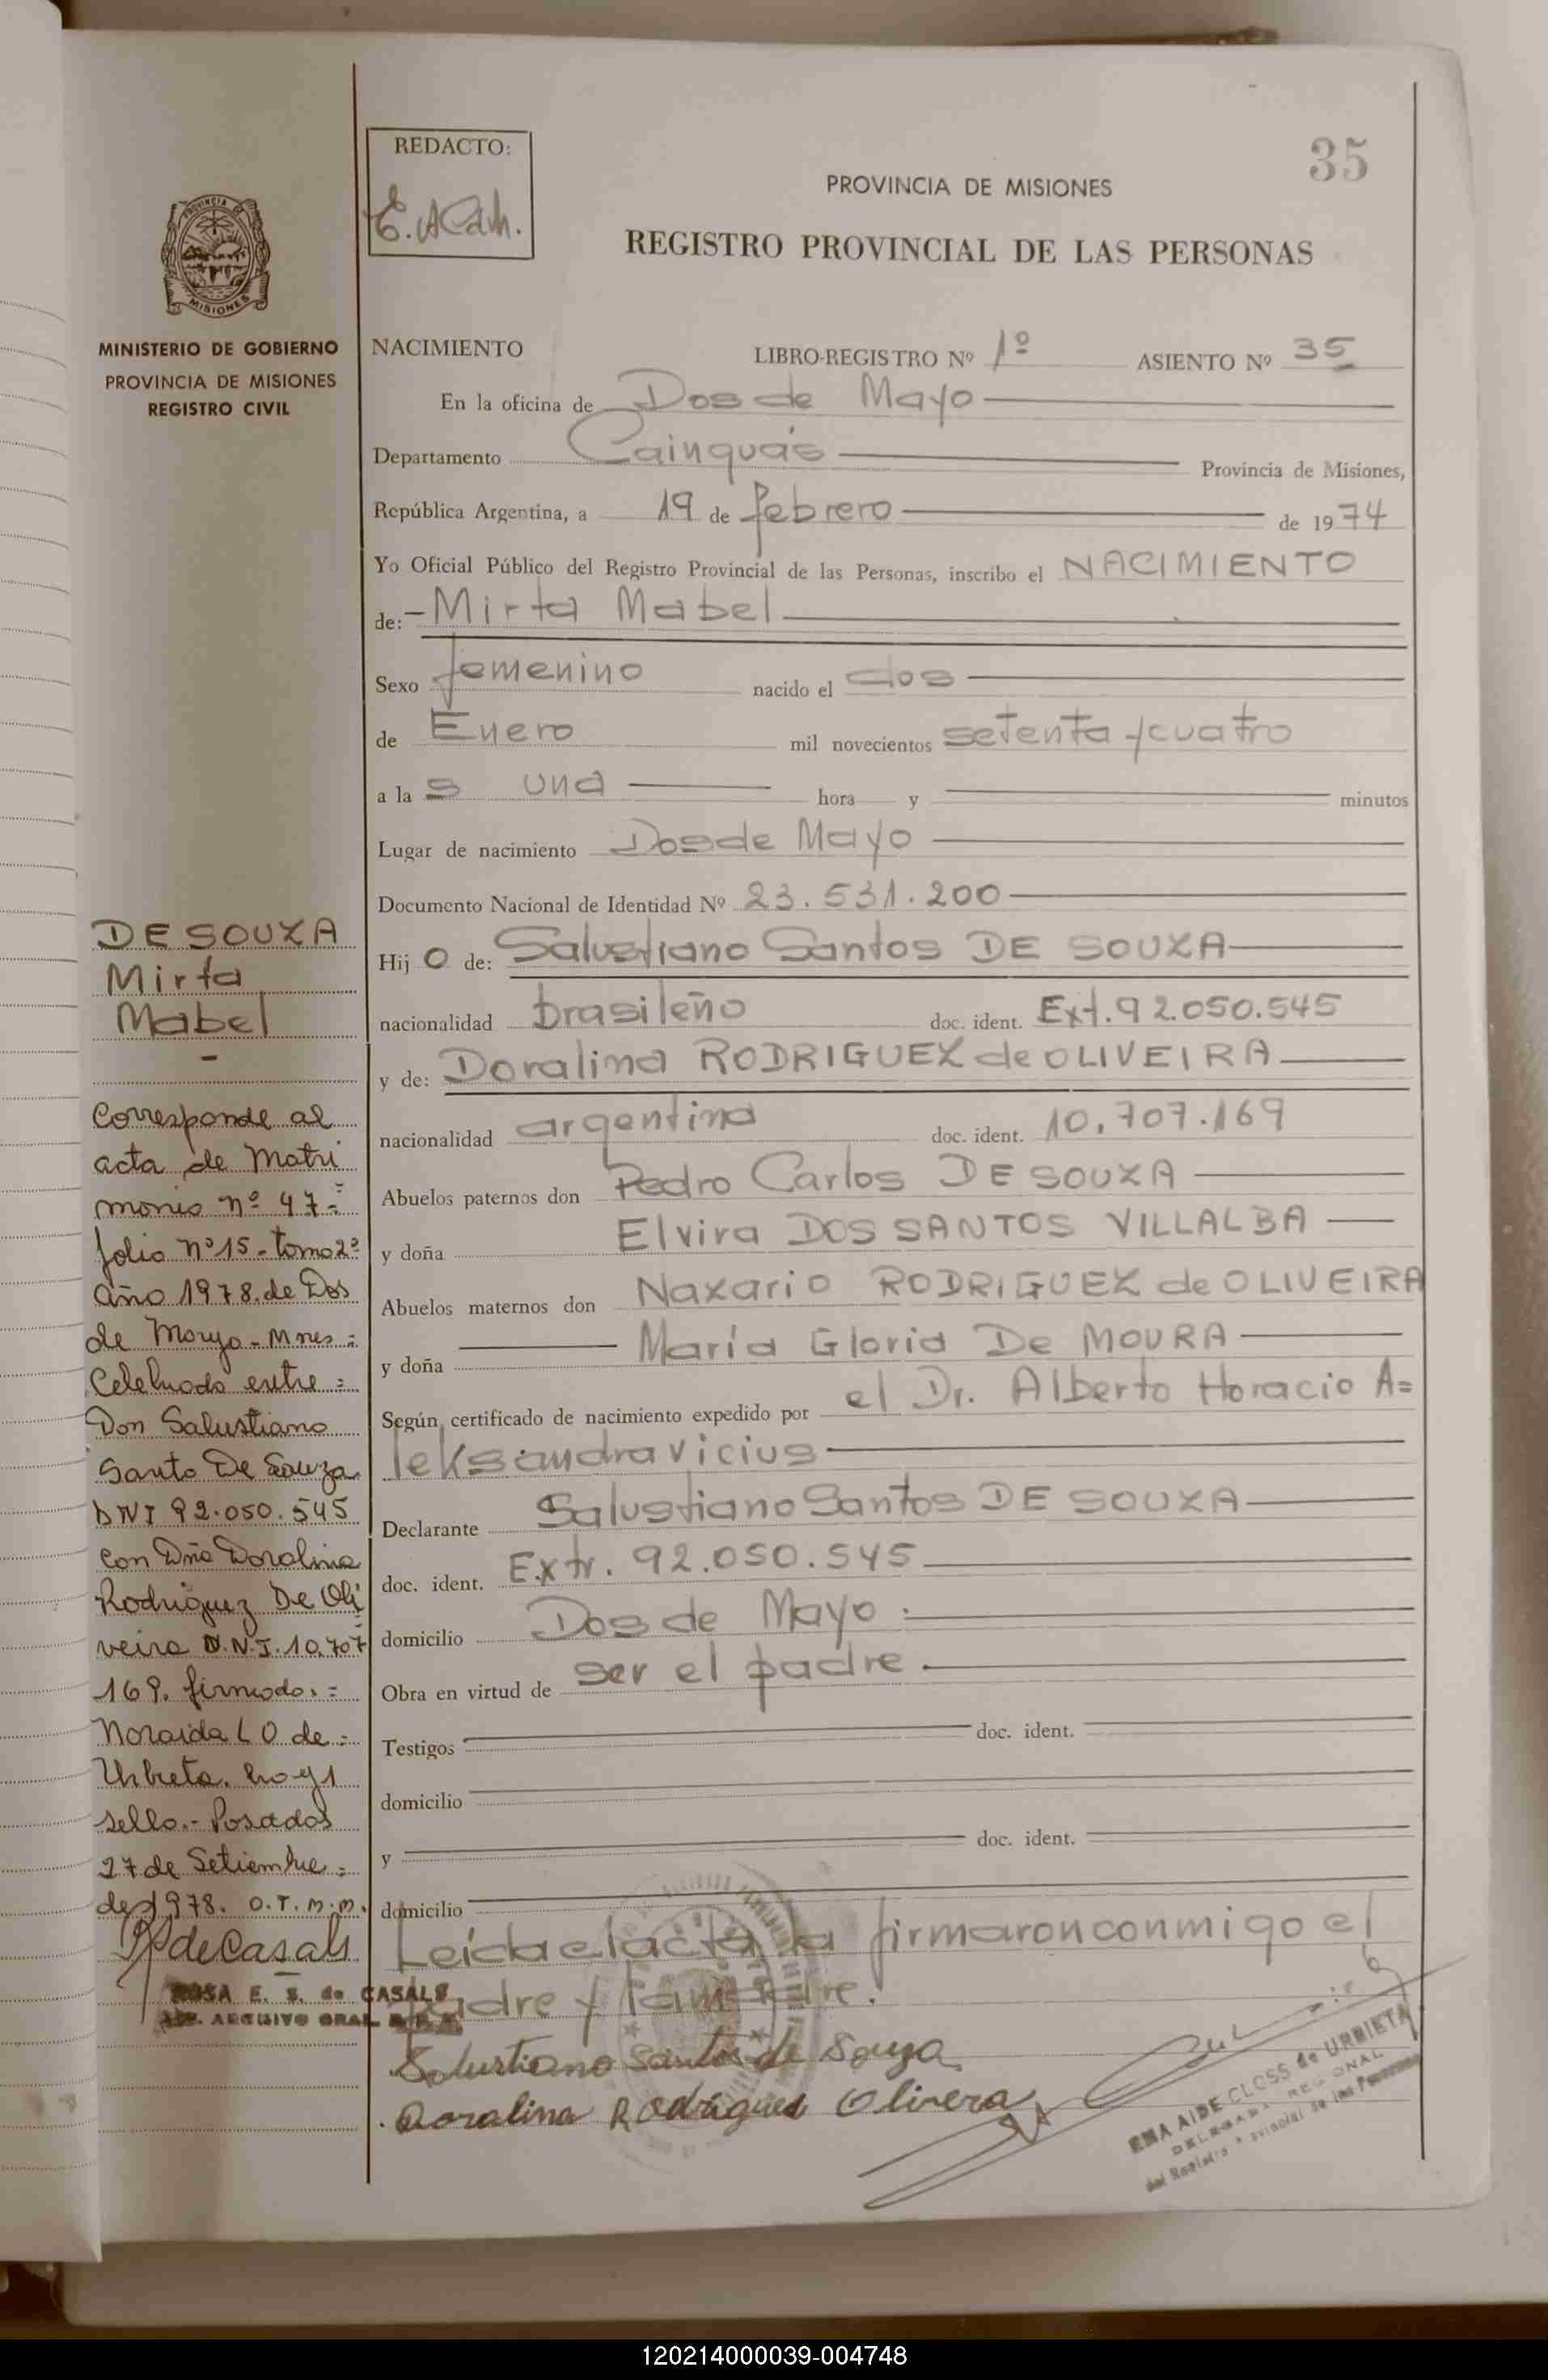 35
REDACTO:
PROVINCIA DE MISIONES
REGISTRO PROVINCIAL DE LAS PERSONAS
PROVINCIA
MISIONES
MINISTERIO DE GOBIERNO
PROVINCIA DE MISIONES
REGISTRO CIVIL
NACIMIENTO LIBRO-REGISTRO Nº 1º ASIENTO Nº 35
En la oficina de Dos de Mayo
Departamento Cainguás Provincia de Misiones,
República Argentina, a 19 de febrero de 1974
Yo Oficial Público del Registro Provincial de las Personas, inscribo el NACIMIENTO
de: - Mirta Mabel
Sexo femenino nacido el dos
de Enero mil novecientos setenta y cuatro
a la s una hora y minutos
Lugar de nacimiento Dos de Mayo
Documento Nacional de Identidad Nº 23.531.200
Hij o de: Salustiano Santos DE SOUZA
nacionalidad brasileño doc. ident. Ext. 92.050.545
y de: Doralina RODRIGUEZ de OLIVEIRA
nacionalidad argentina doc. ident. 10.707.169
Abuelos paternos don Pedro Carlos DE SOUZA
y doña Elvira DOS SANTOS VILLALBA
Abuelos maternos don Nazario RODRIGUEZ de OLIVEIRA
y doña María Gloria De MOURA
Según certificado de nacimiento expedido por el Dr. Alberto Horacio A=
leksandravicius
Declarante Salustiano Santos DE SOUZA
doc. ident. Extr. 92.050.545
domicilio Dos de Mayo
Obra en virtud de ser el padre
Testigos doc. ident.
domicilio
y doc. ident.
domicilio
Leída el acta la firmaron conmigo el
padre y la madre.
Salustiano Santos de Souza
Doralina Rodrigues Olivera
EMA AIDE CLOSS de URRIETA
DELEGADA REGIONAL
del Registro Provincial de las Personas
DE SOUZA
Mirta
Mabel
-
Corresponde al
acta de Matri
monio nº 47=
folio nº 15 - tomo 2º
año 1978. de Dos
de Mayo - Mnes =
Celebrado entre =
Don Salustiano
Santo De Souza
DNI 92.050.545
con Dña Doralina
Rodriguez De Oli
veira D.N.I. 10.707
169. firmado. =
Noraida L O de =
Urbieta. hoy 1
sello. - Posadas
27 de Setiembre =
de 1978. O.T.M.M.
de Casals
ROSA E. S. de CASALS
120214000039-004748